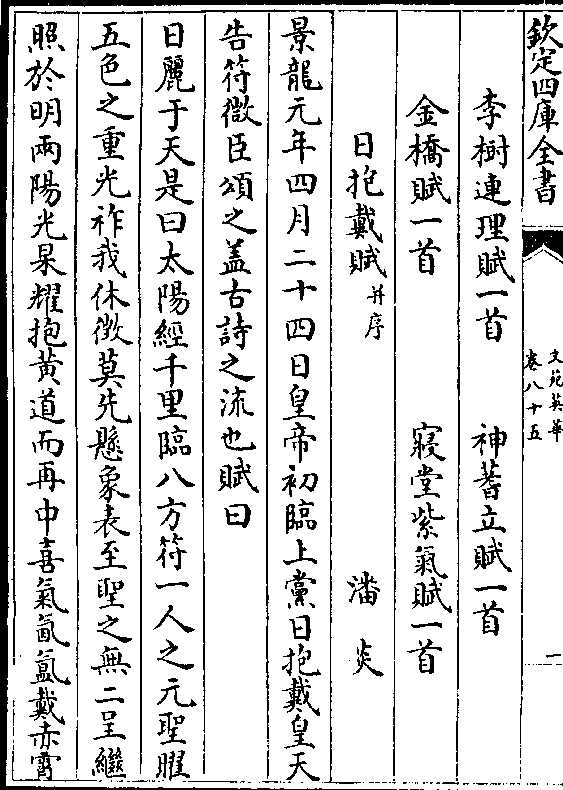 欽定四庫全書
文苑英華
卷八十五
一
李樹連理賦一首 神蓍立賦一首
金橋賦一首 寢堂紫氣賦一首
日抱戴賦 并序 潘炎
景龍元年四月二十四日皇帝初臨上黨日抱戴皇天
告符微臣頌之盖古詩之流也賦曰
日麗于天是曰太陽經千里臨八方符一人之元聖暉
五色之重光祚我休徴莫先懸象表至聖之無二呈繼
照於明兩陽光杲耀抱黄道而再中喜氣氤氲戴赤霄